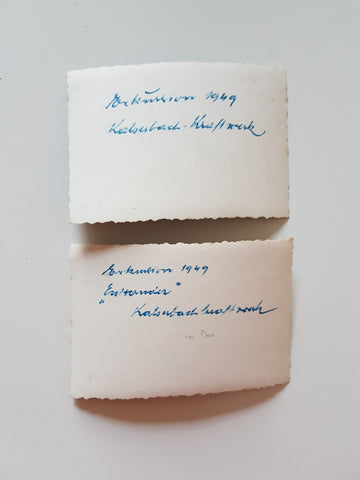 Exkursion 1949
Kalserbach-Kraftwerk
Exkursion 1949
Kalserbachkraftwerk
im Bau